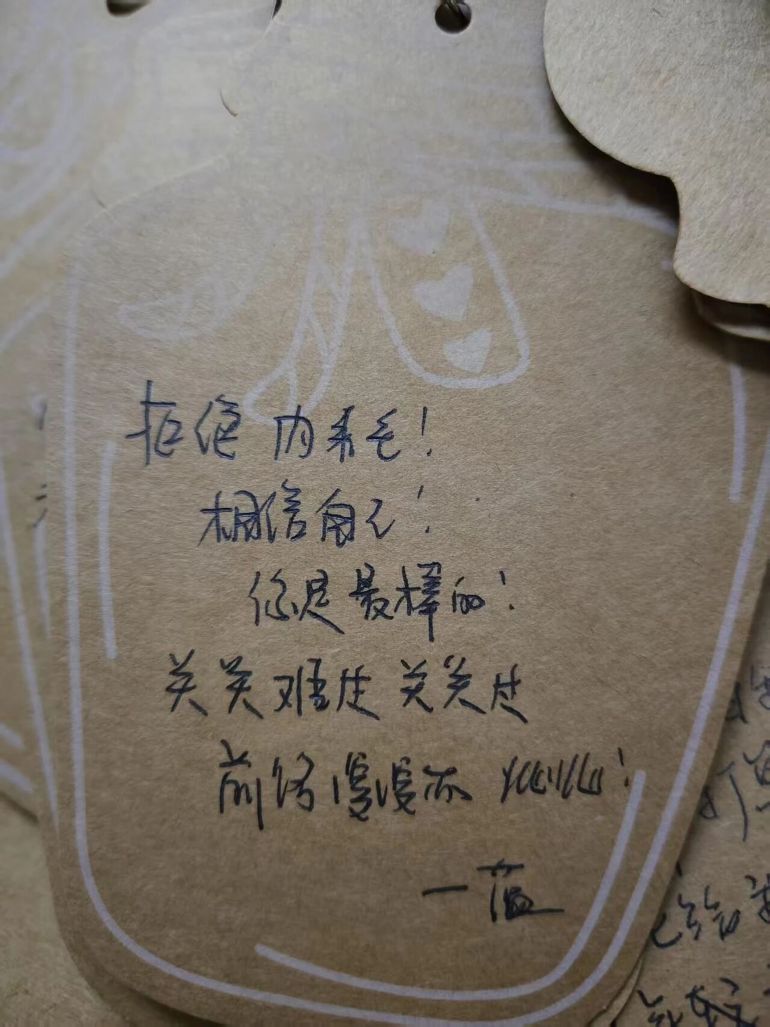 拒绝内耗!
相信自己!
你是最棒的!
关关难过关关过
前路漫漫亦灿灿!
一蒀